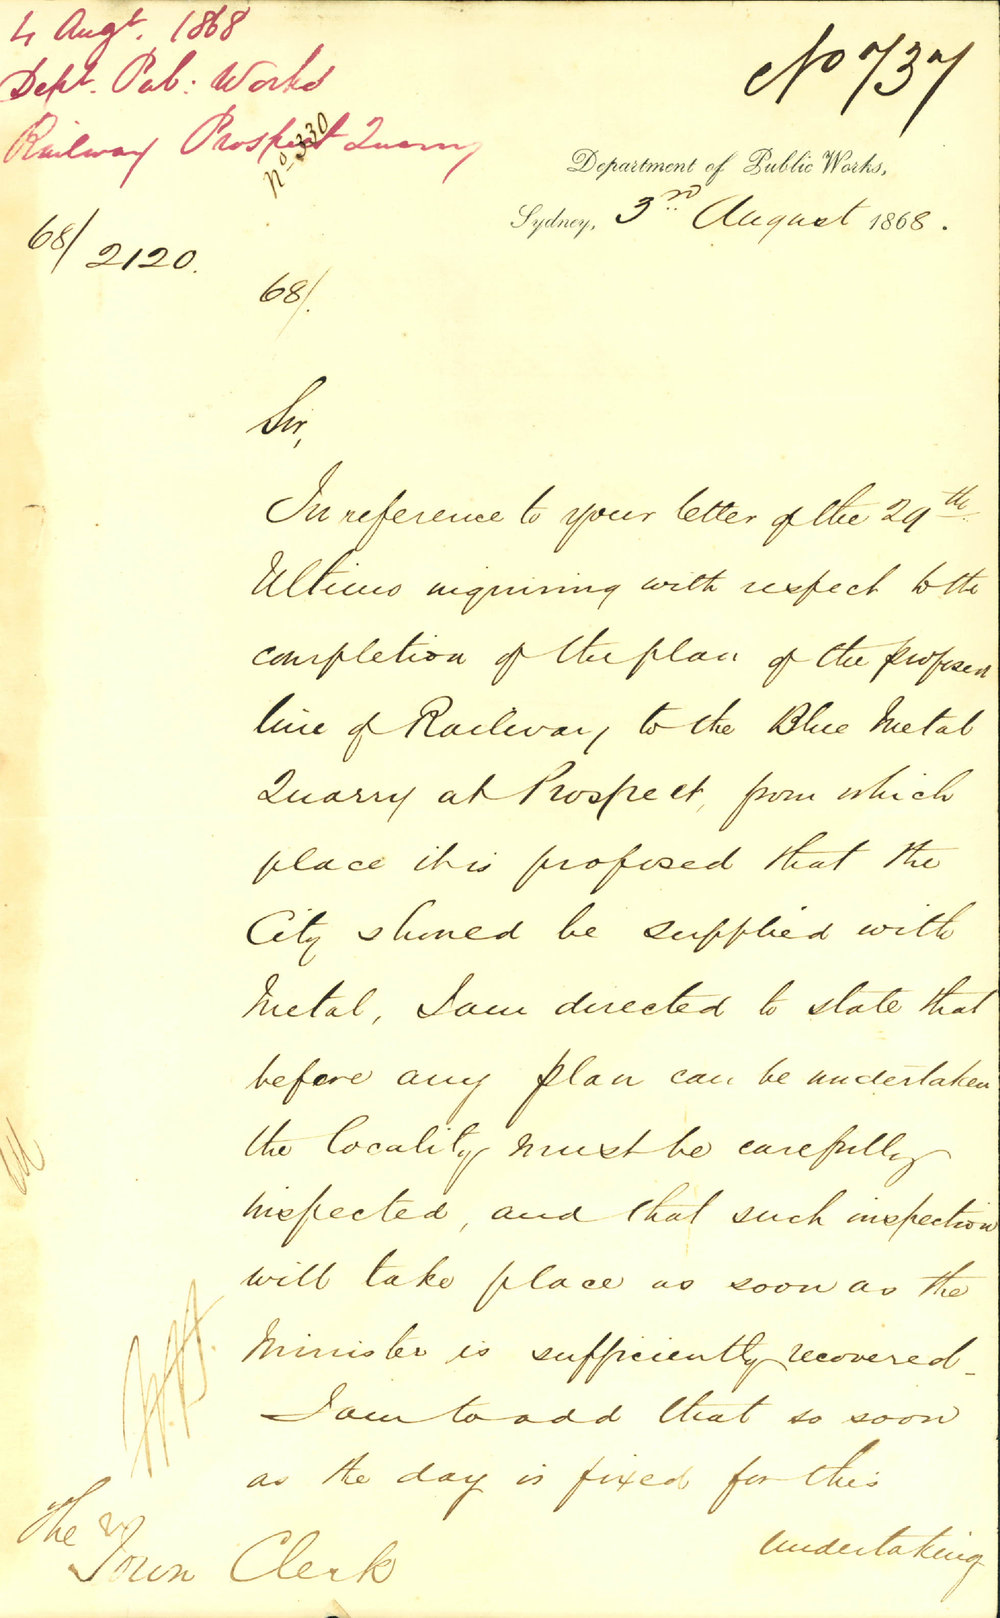 4 Augt. 1868
Dept. Pub: Works
Railway Prospect Quarry
No 330
No 737
Department of Public Works,
Sydney, 3rd August 1868.
68/2120.
68/.
Sir,
In reference to your letter of the 29th
Ultimo inquiring with respect to the
completion of the plan of the proposed
line of Railway to the Blue Metal
Quarry at Prospect, from which
place it is proposed that the
City should be supplied with
Metal, I am directed to state that
before any plan can be undertaken
the locality must be carefully
inspected, and that such inspection
will take place as soon as the
Minister is sufficiently recovered_
I am to add that so soon
as the day is fixed for this
undertaking
The
Town Clerk